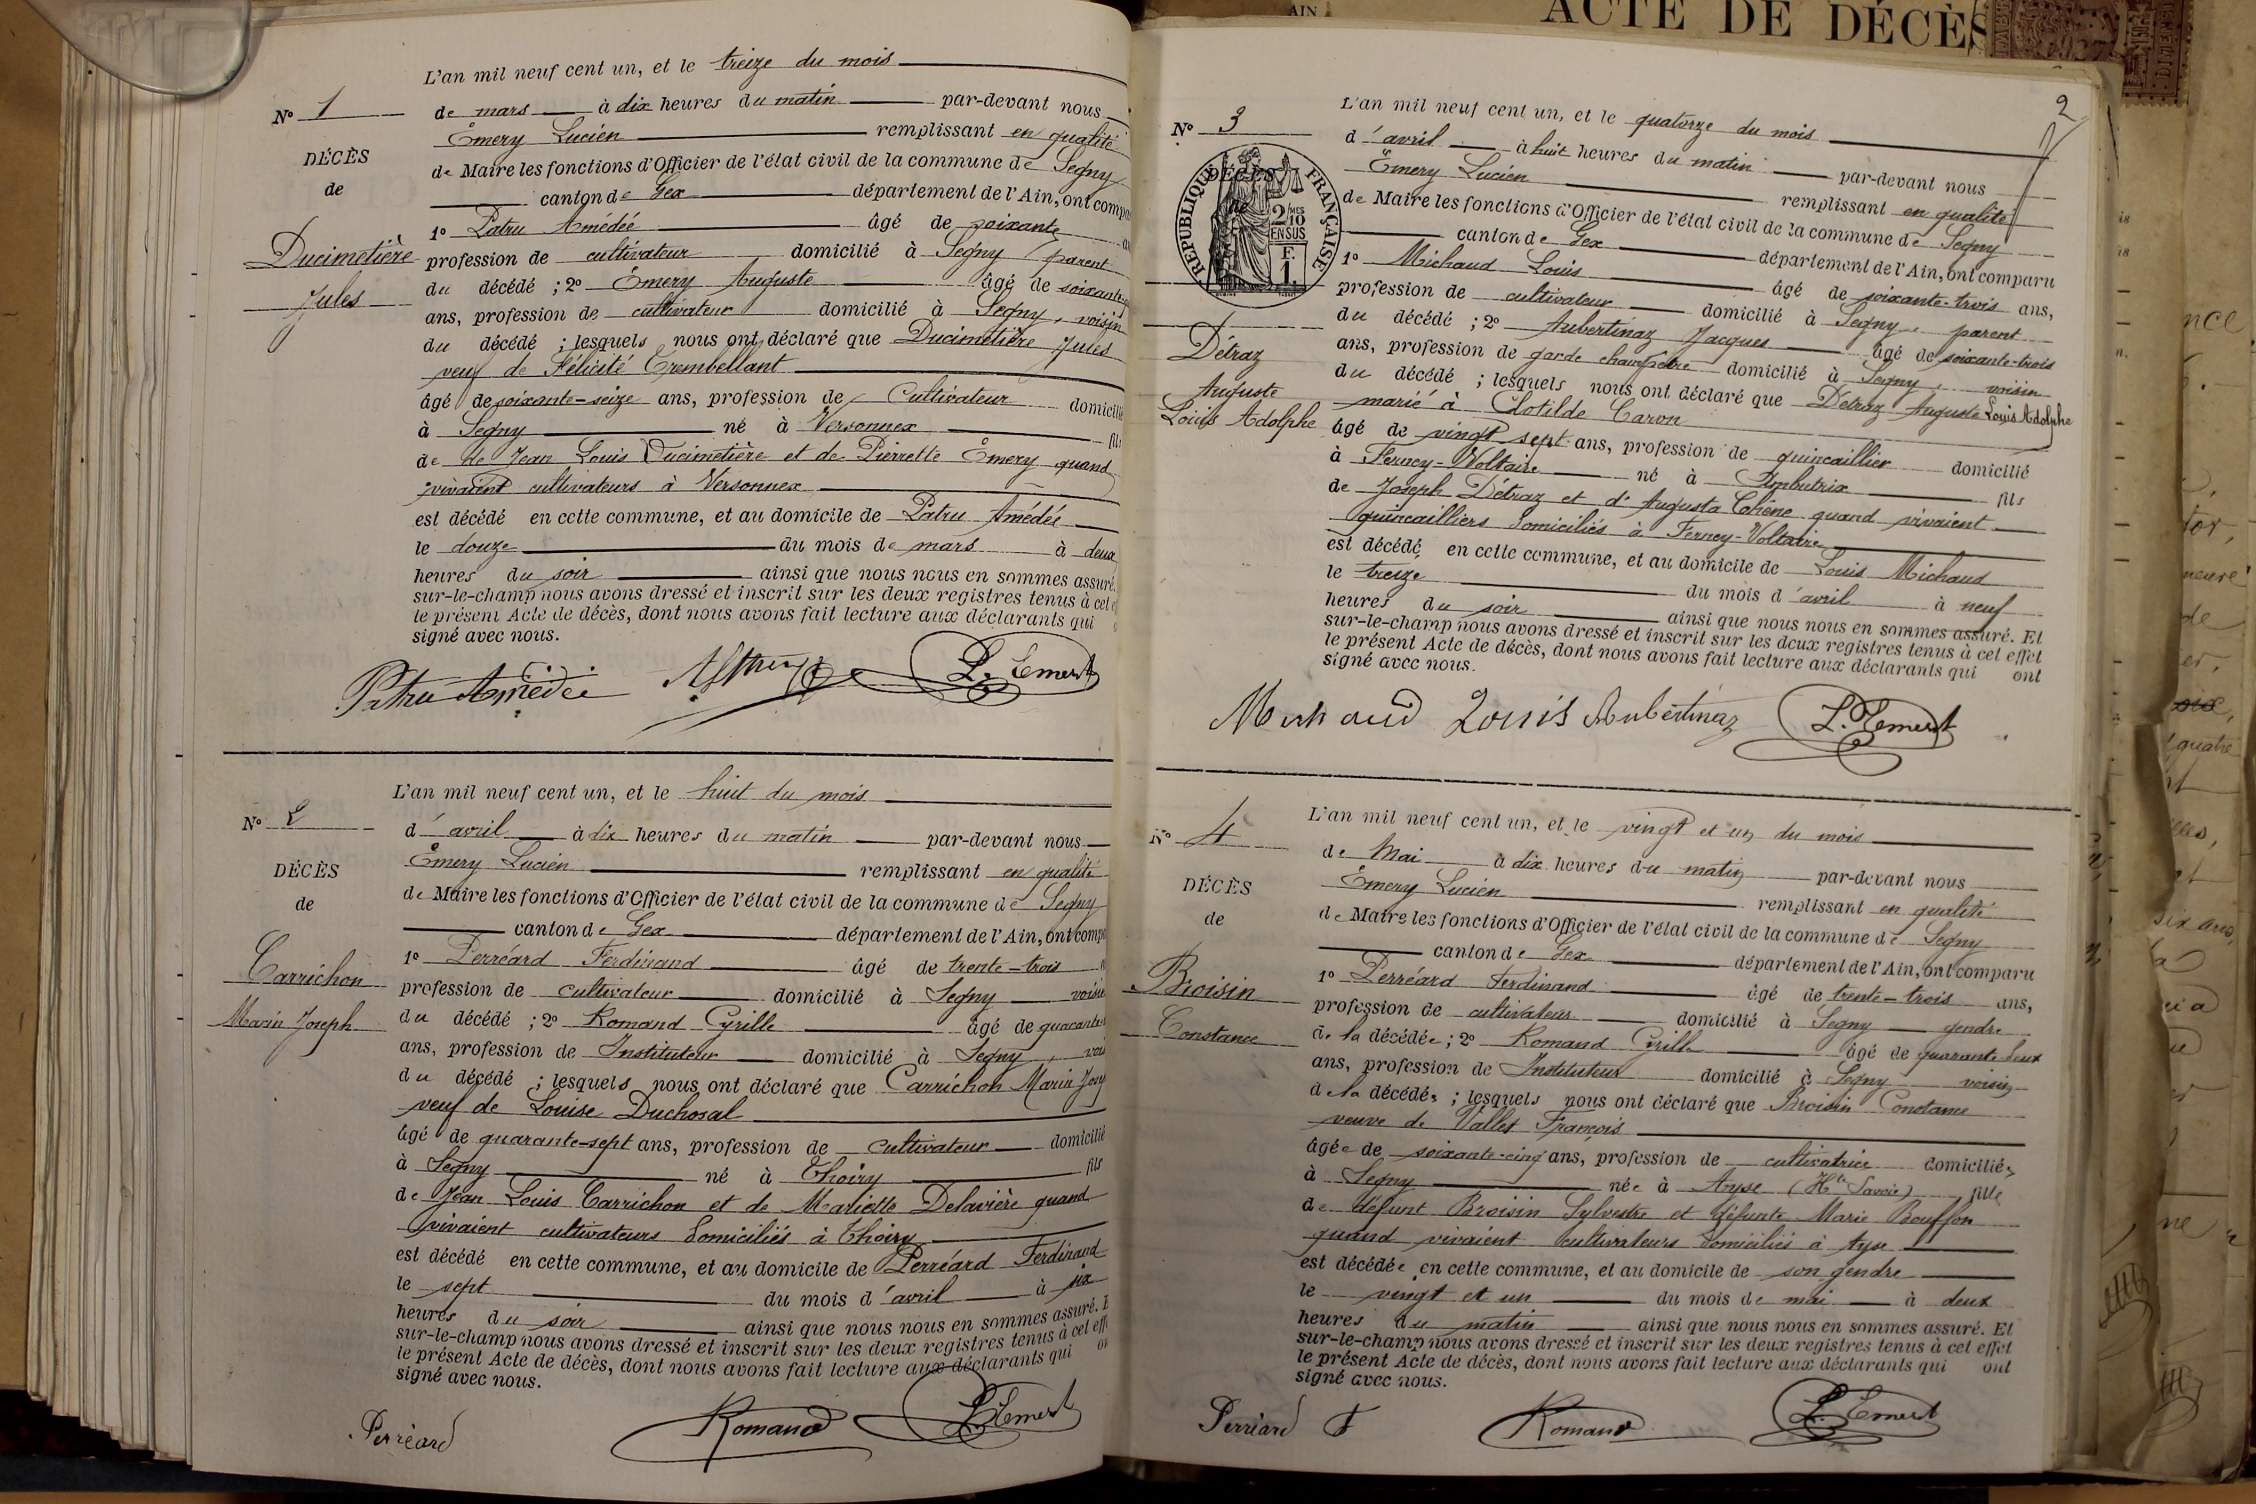 L'an mil neuf cent un, et le treize du mois
N° 1 de mars à dix heures du matin par-devant nous
Émery Lucien remplissant en qualité
DÉCÈS de Maire les fonctions d'Officier de l'état civil de la commune de Segny
de canton de Gex département de l'Ain, ont
1° Patru Amédée âgé de soixante
Ducimetière profession de cultivateur domicilié à Segny, parent
du décédé ; 2° Émery Auguste âgé de soixante
Jules ans, profession de cultivateur domicilié à Segny, voisin
du décédé ; lesquels nous ont déclaré que Ducimetière Jules
veuf de Félicité Trembellant
âgé de soixante-seize ans, profession de Cultivateur domicilié
à Segny né à Versonnex fils
de de Jean Louis Ducimetière et de Pierrette Émery quand
vivaient cultivateurs à Versonnex
est décédé en cette commune, et au domicile de Patru Amédée
le douze du mois de mars à deux
heures du soir ainsi que nous nous en sommes assuré.
sur-le-champ nous avons dressé et inscrit sur les deux registres tenus à cet
le présent Acte de décès, dont nous avons fait lecture aux déclarants qui
signé avec nous.
Patru Amédée L. Emery
L'an mil neuf cent un, et le huit du mois
N° 2 d'avril à dix heures du matin par-devant nous
Émery Lucien remplissant en qualité
DÉCÈS de Maire les fonctions d'Officier de l'état civil de la commune de Segny
de canton de Gex département de l'Ain, ont
1° Perréard Ferdinand âgé de trente-trois
Carrichon profession de cultivateur domicilié à Segny voisin
Marin Joseph du décédé ; 2° Romand Cyrille âgé de quarante
ans, profession de Instituteur domicilié à Segny,
du décédé ; lesquels nous ont déclaré que Carrichon Marin
veuf de Louise Duchosal
âgé de quarante-sept ans, profession de cultivateur domicilié
à Segny né à Thoiry fils
de Jean Louis Carrichon et de Mariette Delavière quand
vivaient cultivateurs domiciliés à Thoiry
est décédé en cette commune, et au domicile de Perréard Ferdinand
le sept du mois d'avril à six
heures du soir ainsi que nous nous en sommes assuré.
sur-le-champ nous avons dressé et inscrit sur les deux registres tenus à cet
le présent Acte de décès, dont nous avons fait lecture aux déclarants qui
signé avec nous.
Perréard Romand L. Emery
AIN
ACTE DE DÉCÈS
2
L'an mil neuf cent un, et le quatorze du mois
N° 3 d'avril à huit heures du matin par-devant nous
Émery Lucien remplissant en qualité
DÉCÈS de Maire les fonctions d'Officier de l'état civil de la commune de Segny
de canton de Gex département de l'Ain, ont comparu
RÉPUBLIQUE FRANÇAISE
2/10MES EN SUS
F. 1.
1° Michaud Louis âgé de soixante-trois ans,
profession de cultivateur domicilié à Segny, parent
du décédé ; 2° Aubertinaz Jacques âgé de soixante-trois
Détraz ans, profession de garde champêtre domicilié à Segny, voisin
Auguste du décédé ; lesquels nous ont déclaré que Détraz Auguste Louis Adolphe
Louis Adolphe marié à Clotilde Caron
âgé de vingt sept ans, profession de quincaillier domicilié
à Ferney-Voltaire né à Ambutrix fils
de Joseph Détraz et d'Augusta Chêne quand vivaient
quincailliers domiciliés à Ferney-Voltaire
est décédé en cette commune, et au domicile de Louis Michaud
le treize du mois d'avril à neuf
heures du soir ainsi que nous nous en sommes assuré. Et
sur-le-champ nous avons dressé et inscrit sur les deux registres tenus à cet effet
le présent Acte de décès, dont nous avons fait lecture aux déclarants qui ont
signé avec nous.
Michaud Louis Aubertinaz L. Emery
L'an mil neuf cent un, et le vingt et un du mois
N° 4 de Mai à dix heures du matin par-devant nous
Émery Lucien remplissant en qualité
DÉCÈS de Maire les fonctions d'Officier de l'état civil de la commune de Segny
de canton de Gex département de l'Ain, ont comparu
1° Perréard Ferdinand âgé de trente-trois ans,
Broisin profession de cultivateur domicilié à Segny gendre
Constance de la décédée ; 2° Romand Cyrille âgé de quarante deux
ans, profession de Instituteur domicilié à Segny voisin
de la décédée ; lesquels nous ont déclaré que Broisin Constance
veuve de Vallet François
âgée de soixante-cinq ans, profession de cultivatrice domiciliée
à Segny née à Ayse (Hte Savoie) fille
de défunt Broisin Sylvestre et défunte Marie Bouffon
quand vivaient cultivateurs domiciliés à Ayse
est décédée en cette commune, et au domicile de son gendre
le vingt et un du mois de mai à deux
heures du matin ainsi que nous nous en sommes assuré. Et
sur-le-champ nous avons dressé et inscrit sur les deux registres tenus à cet effet
le présent Acte de décès, dont nous avons fait lecture aux déclarants qui ont
signé avec nous.
Perréard F Romand L. Emery